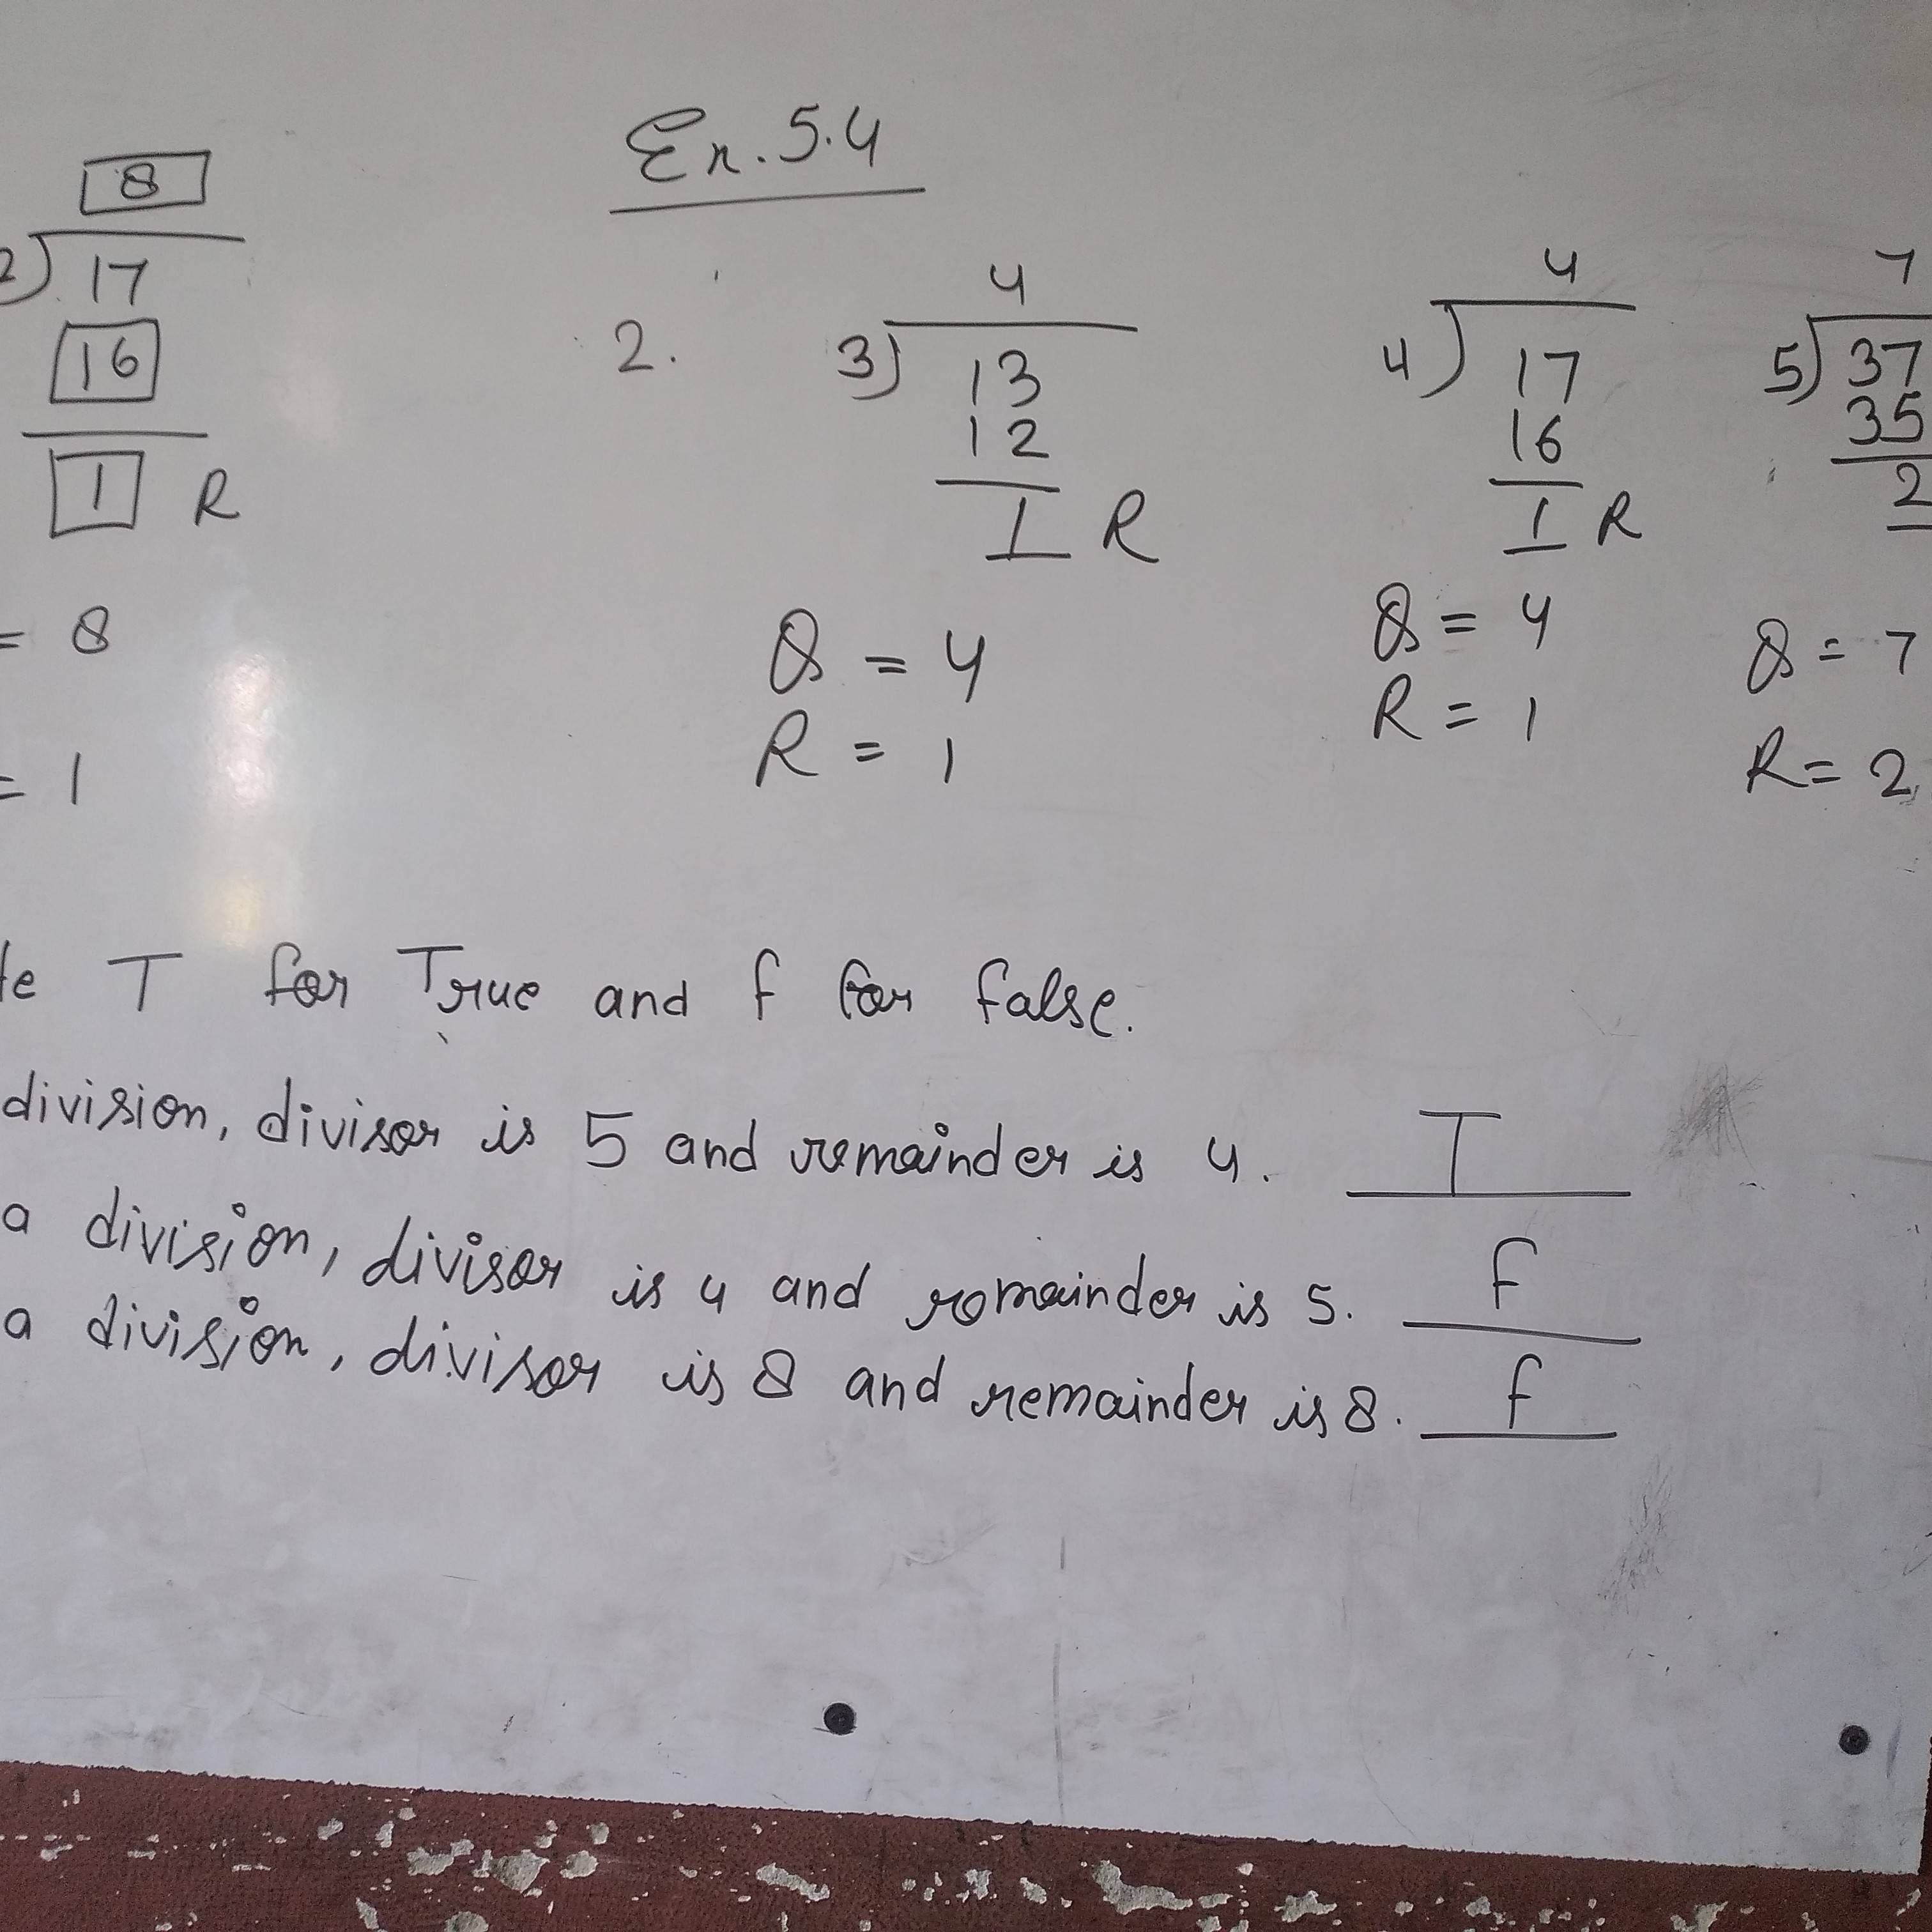 Ex. 5.4
8
2) 17
16
1 R
= 8
= 1
2.
4
3) 13
12
1 R
Q = 4
R = 1
4
4) 17
16
1 R
Q = 4
R = 1
7
5) 37
35
2
Q = 7
R = 2
te T for True and f for false.
division, divisor is 5 and remainder is 4. T
a division, divisor is 4 and remainder is 5. f
a division, divisor is 8 and remainder is 8. f